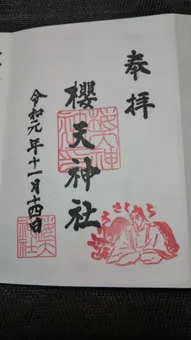 奉拝
櫻天神社
令和元年十一月十四日